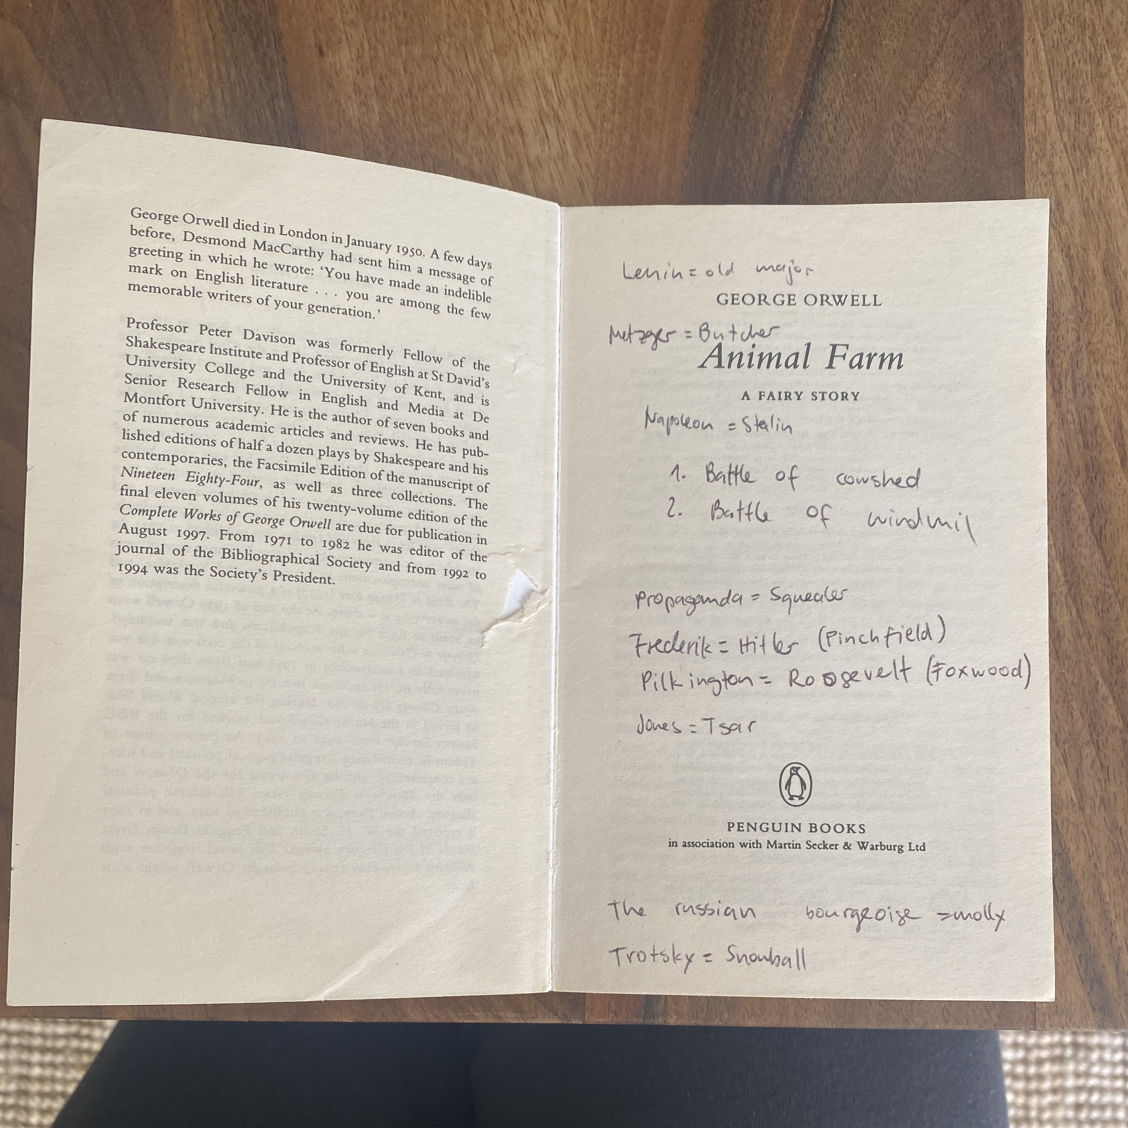 George Orwell died in London in January 1950. A few days
before, Desmond MacCarthy had sent him a message of
greeting in which he wrote: 'You have made an indelible
mark on English literature . . . you are among the few
memorable writers of your generation.'
Professor Peter Davison was formerly Fellow of the
Shakespeare Institute and Professor of English at St David's
University College and the University of Kent, and is
Senior Research Fellow in English and Media at De
Montfort University. He is the author of seven books and
of numerous academic articles and reviews. He has pub-
lished editions of half a dozen plays by Shakespeare and his
contemporaries, the Facsimile Edition of the manuscript of
Nineteen Eighty-Four, as well as three collections. The
final eleven volumes of his twenty-volume edition of the
Complete Works of George Orwell are due for publication in
August 1997. From 1971 to 1982 he was editor of the
journal of the Bibliographical Society and from 1992 to
1994 was the Society's President.
Lenin = old major
GEORGE ORWELL
Metzger = Butcher
Animal Farm
A FAIRY STORY
Napoleon = Stalin
1. Battle of cowshed
2. Battle of windmil
Propaganda = Squealer
Frederik = Hitler (Pinchfield)
Pilkington = Roosevelt (Foxwood)
Jones = Tsar
PENGUIN BOOKS
in association with Martin Secker & Warburg Ltd
the russian bourgeoise = molly
Trotsky = Snowball